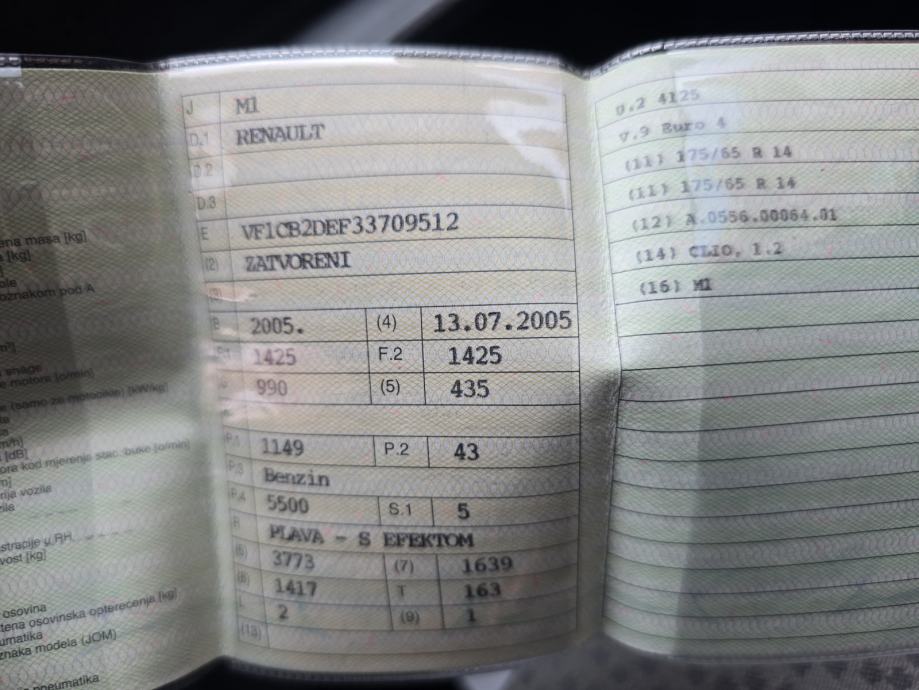 ena masa [kg]
a [kg]
ole
oznakom pod A
m³]
snage
e motora [o/min]
e (samo za motocikle) [kW/kg]
m/h]
[dB]
ora kod mjerenja stac. buke [o/min]
m]
rija vozila
zila
stracije u RH
vost [kg]
osovina
tena osovinska opterećenja [kg]
umatika
znaka modela (JOM)
pneumatika
J M1
D.1 RENAULT
D.2
D.3
E VF1CB2DEF33709512
(2) ZATVORENI
(3) -
B 2005. (4) 13.07.2005
F.1 1425 F.2 1425
G 990 (5) 435
P.1 1149 P.2 43
P.3 Benzin
P.4 5500 S.1 5
R PLAVA - S EFEKTOM
(6) 3773 (7) 1639
(8) 1417 T 163
L 2 (9) 1
(13)
U.2 4125
V.9 Euro 4
(11) 175/65 R 14
(11) 175/65 R 14
(12) A.0556.00064.01
(14) CLIO, 1.2
(16) M1